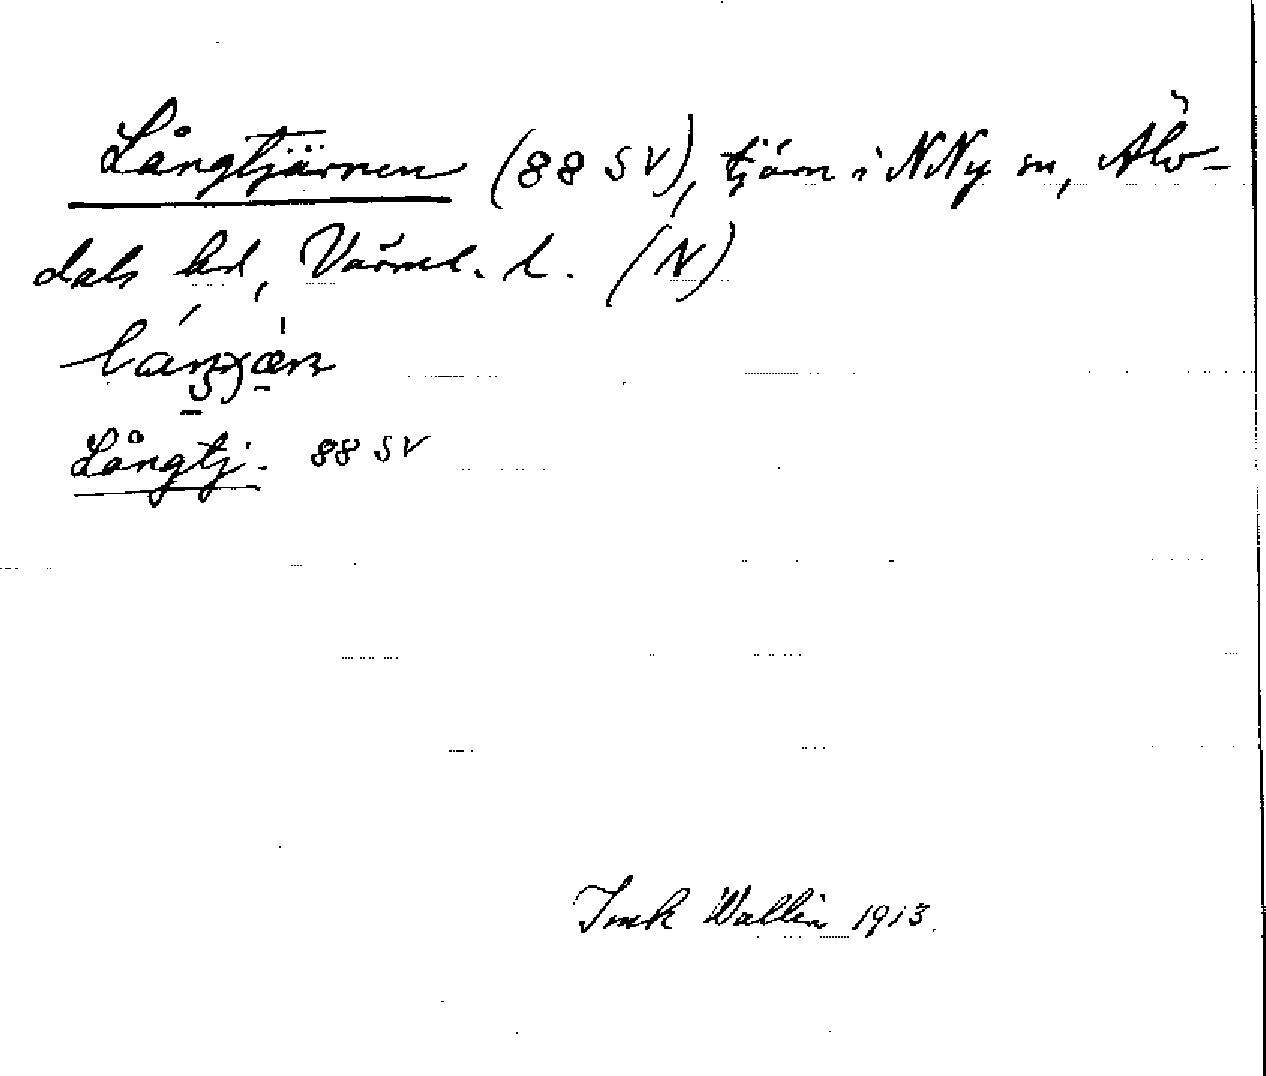 Långtjärnen (88 SV), tjärn i NNy sn, Älv-
dals hd, Värml. l. (N)
Långtj. 88 SV
Wallin 1913.